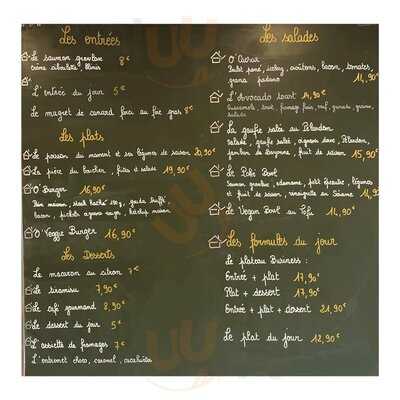 Les entrées
Le saumon gravlax 8€
Crème ciboulette, blinis
L'entrée du jour 5€
Le magret de canard farci au foie gras 8€
Les plats
Le poisson du moment et ses légumes de saison 20,90€
La pièce du boucher, frites et salade 19,90€
O'Burger 16,90€
Pain maison, steak haché 150g,
bacon, pickels oignons rouges, ketchup maison
O'Veggie Burger 16,90€
Les Desserts
Le macaron au citron 7€
Le tiramisu 7,90€
Le café gourmand 8,90€
Le dessert du jour 5€
L'assiette de fromages 7€
L'entremet choco, caramel, cacahuète
Les salades
O'César
Poulet pané, iceberg, croûtons, bacon, tomates,
grana padano 14,90€
L'Avocado toast 14,90€
Guacamole, toast, fromage frais, oeuf, grenade, graines,
salade
La gaufre salée au Pélardon
Salade, gaufre salée, oignons, Pélardon,
jambon de Bayonne, fruit de saison 15,90€
Le Poke Bowl
Saumon gravlax, edamame, petit épeautre, légumes
& fruit de saison, vinaigrette au sésame 14,90€
Le Vegan Bowl au Tofu 14,90€
Les formules du jour
Le plateau Business :
Entrée + plat 17,90€
Plat + dessert 17,90€
Entrée + plat + dessert 21,90€
Le plat du jour 12,90€